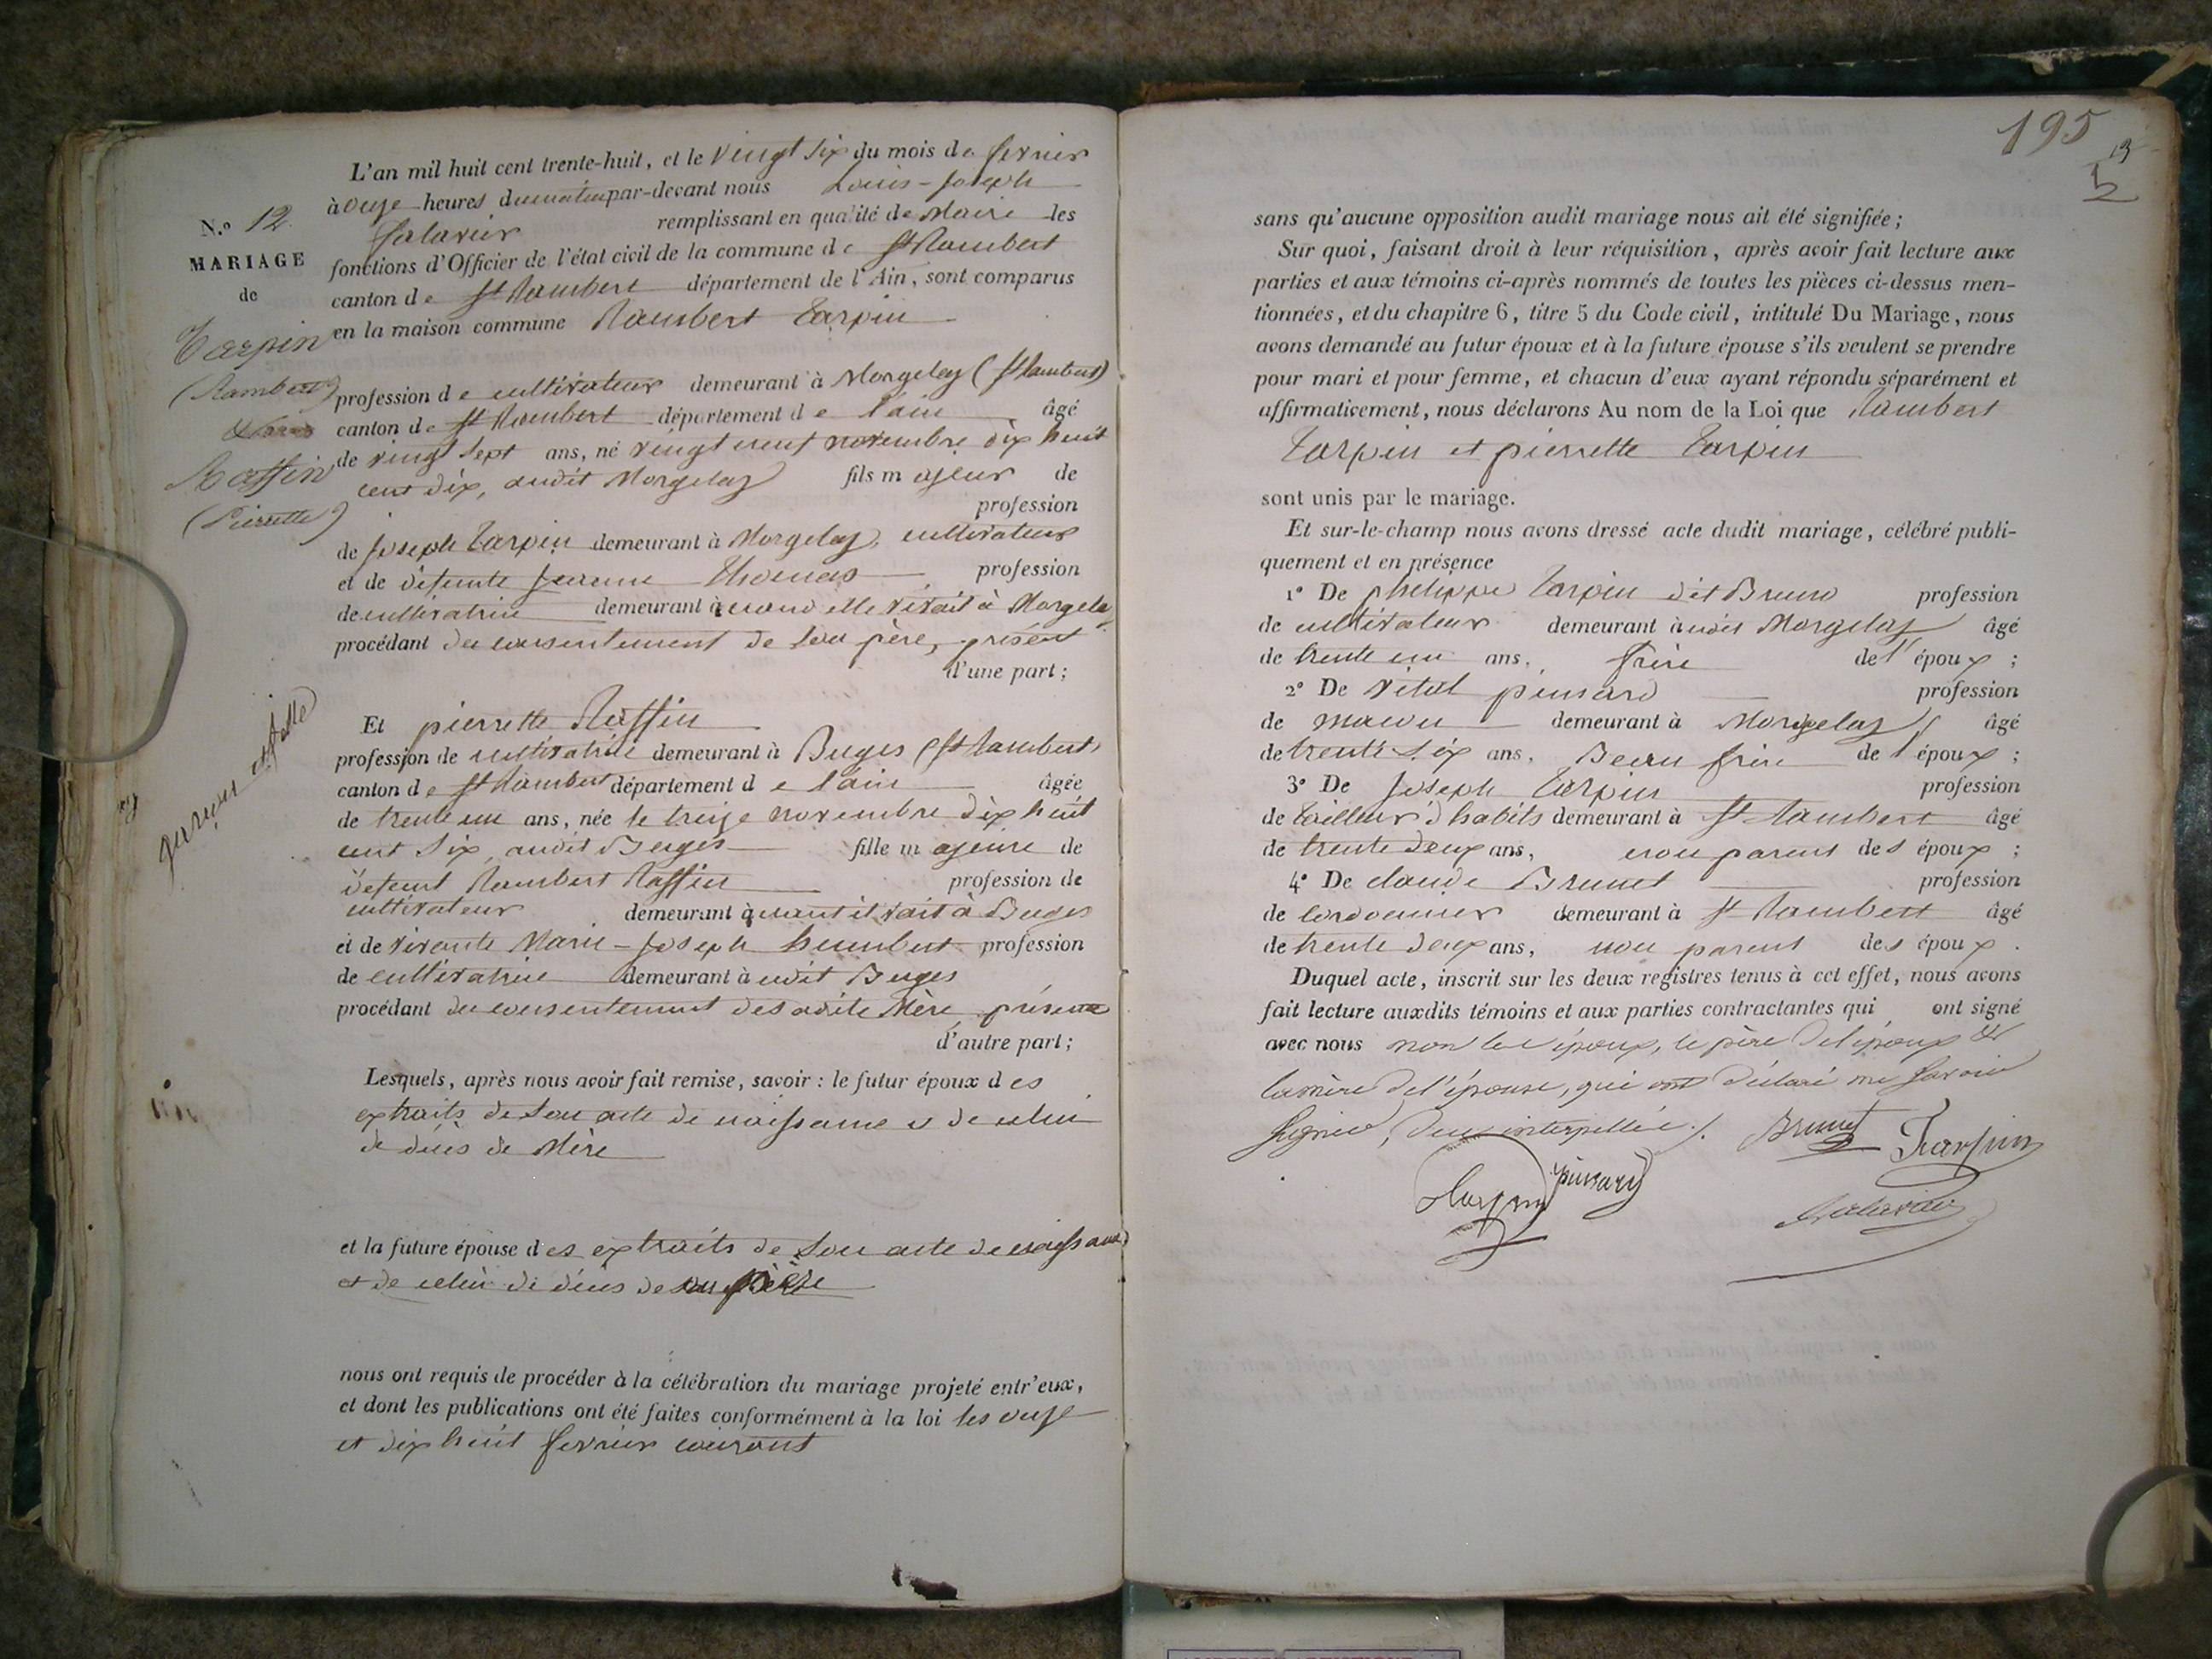 N.º 12
MARIAGE
de
Tarpin
(Rambert)
Raffin
(Pierrette)
garçon et fille
L'an mil huit cent trente-huit, et le vingt six du mois de fevrier
à onze heures du matin par-devant nous Louis-Joseph
Salavier remplissant en qualité de Maire les
fonctions d'Officier de l'état civil de la commune de St Rambert
canton de St Rambert département de l'Ain, sont comparus
en la maison commune Rambert Tarpin
profession de cultivateur demeurant à Morgelaz (St Rambert)
canton de St Rambert département de l'ain âgé
de vingt sept ans, né vingt neuf novembre dix huit
cent dix, audit Morgelaz fils majeur de
profession
de Joseph Tarpin demeurant à Morgelaz, cultivateur
et de défunte Jeanne Thomas profession
de cultivatrice demeurant quand elle vivait à Morgelaz
procédant du consentement de son père, présent
d'une part ;
Et pierrette Raffin
profession de cultivatrice demeurant à Buges (St Rambert)
canton de St Rambert département de l'ain âgée
de trente un ans, née le treize novembre dix huit
cent six, audit Buges fille majeure de
défunt Rambert Raffin profession de
cultivateur demeurant quant il vait à Buges
et de vivante Marie-Joseph humbert profession
de cultivatrice demeurant audit Buges
procédant du consentement de sadite Mère présente
d'autre part ;
Lesquels, après nous avoir fait remise, savoir : le futur époux des
extraits de son acte de naissance & de celui
de décès de Mère
et la future épouse des extraits de son acte de naissance
et de celui de décès de son père
nous ont requis de procéder à la célébration du mariage projeté entr'eux,
et dont les publications ont été faites conformément à la loi les onze
et dix huit fevrier courant
195
13
5
sans qu'aucune opposition audit mariage nous ait été signifiée ;
Sur quoi, faisant droit à leur réquisition, après avoir fait lecture aux
parties et aux témoins ci-après nommés de toutes les pièces ci-dessus men-
tionnées, et du chapitre 6, titre 5 du Code civil, intitulé Du Mariage, nous
avons demandé au futur époux et à la future épouse s'ils veulent se prendre
pour mari et pour femme, et chacun d'eux ayant répondu séparément et
affirmativement, nous déclarons Au nom de la Loi que Rambert
Tarpin et pierrette Tarpin
sont unis par le mariage.
Et sur-le-champ nous avons dressé acte dudit mariage, célébré publi-
quement et en présence
1º De phelippe Tarpin dit Bruno profession
de cultivateur demeurant audit Morgelaz âgé
de trente un ans, frère de l'époux ;
2º De vital pinsard profession
de macon demeurant à Morgelaz âgé
de trente six ans, Beau frère de l'époux ;
3º De Joseph Tarpin profession
de tailleur d'habits demeurant à St Rambert âgé
de trente deux ans, non parent des époux ;
4º De claude Brunet profession
de cordonnier demeurant à St Rambert âgé
de trente deux ans, non parent des époux.
Duquel acte, inscrit sur les deux registres tenus à cet effet, nous avons
fait lecture auxdits témoins et aux parties contractantes qui ont signé
avec nous non les époux, le père de l'époux &
la mère de l'épouse, qui ont déclaré ne savoir
signer, de ce interpellés ./. Brunet Tarpin
Tarpin pinsard
Salavier